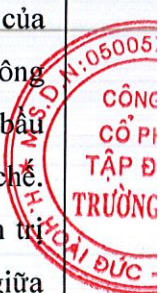 của
ông
bầu
chế.
trị
giữa
M.S.D.N:05005
CÔNG
CỔ PH
TẬP Đ
TRƯỜNG
H. HOÀI ĐỨC -